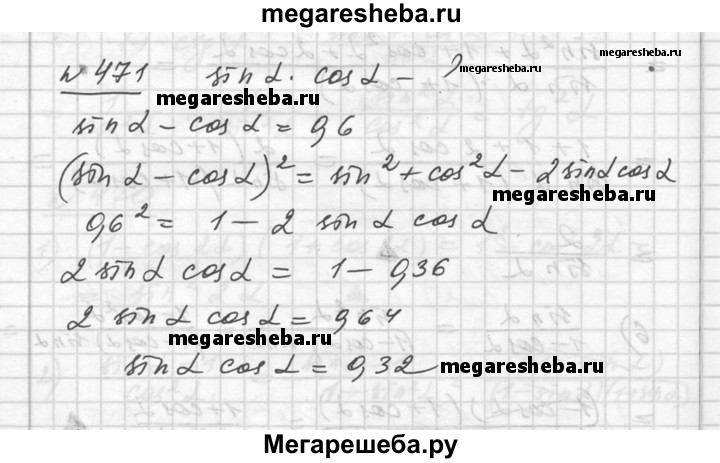 megaresheba.ru
№ 471 sin α · cos α - ?
megaresheba.ru
megaresheba.ru
sin α - cos α = 0,6
(sin α - cos α)² = sin² + cos² α - 2 sin α cos α
0,6² = 1 - 2 sin α cos α
2 sin α cos α = 1 - 0,36
2 sin α cos α = 0,64
megaresheba.ru
sin α cos α = 0,32 megaresheba.ru
Мегарешеба.ру